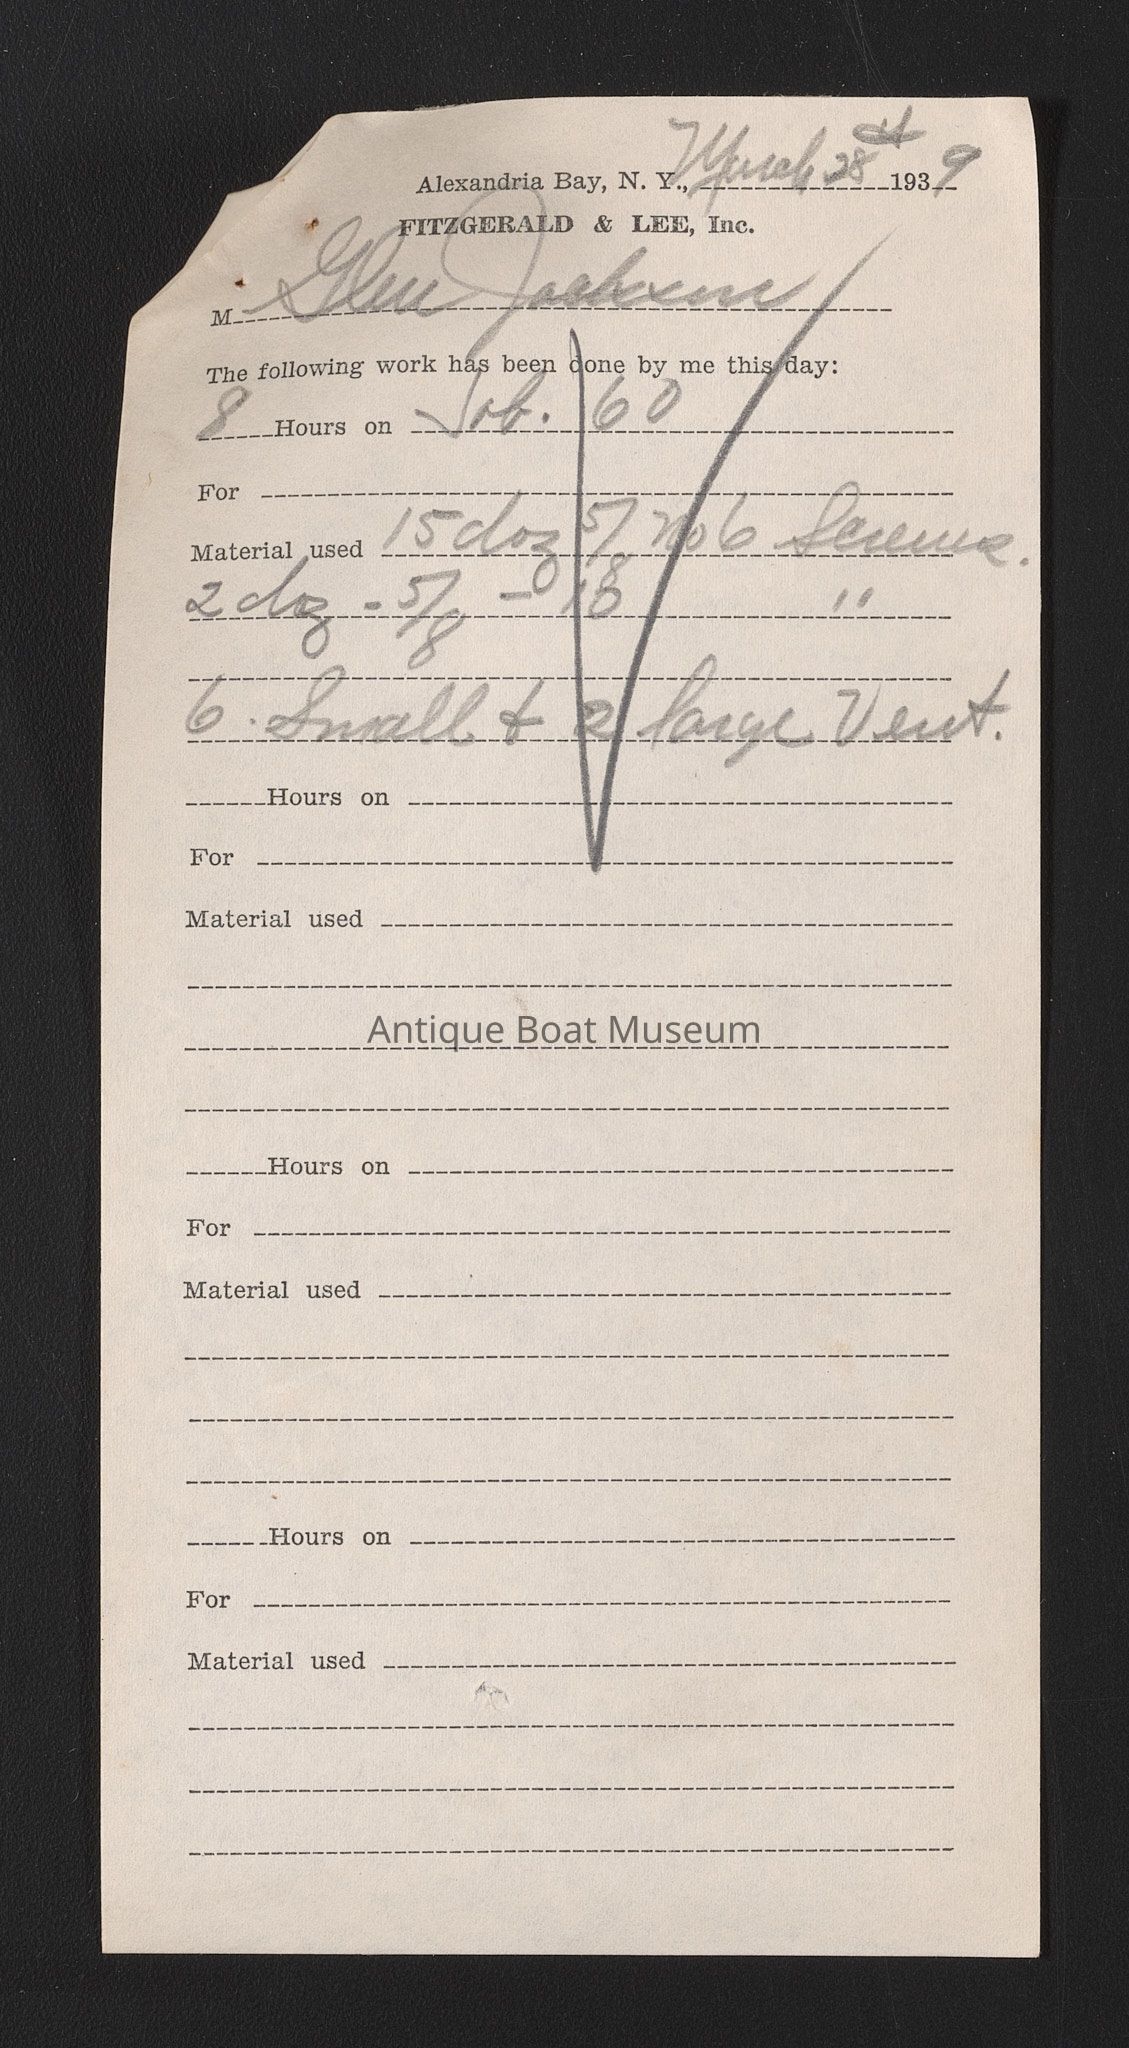 Alexandria Bay, N. Y., March 28 th 1939
FITZGERALD & LEE, Inc.
M Glen Jackson
The following work has been done by me this day:
8 Hours on Job. 60
For
Material used 15 doz 5/8 no 6 Screws.
2 doz - 5/8 - 18 "
6 . Small & 2 large Vent.
Hours on
For
Material used
Antique Boat Museum
Hours on
For
Material used
Hours on
For
Material used